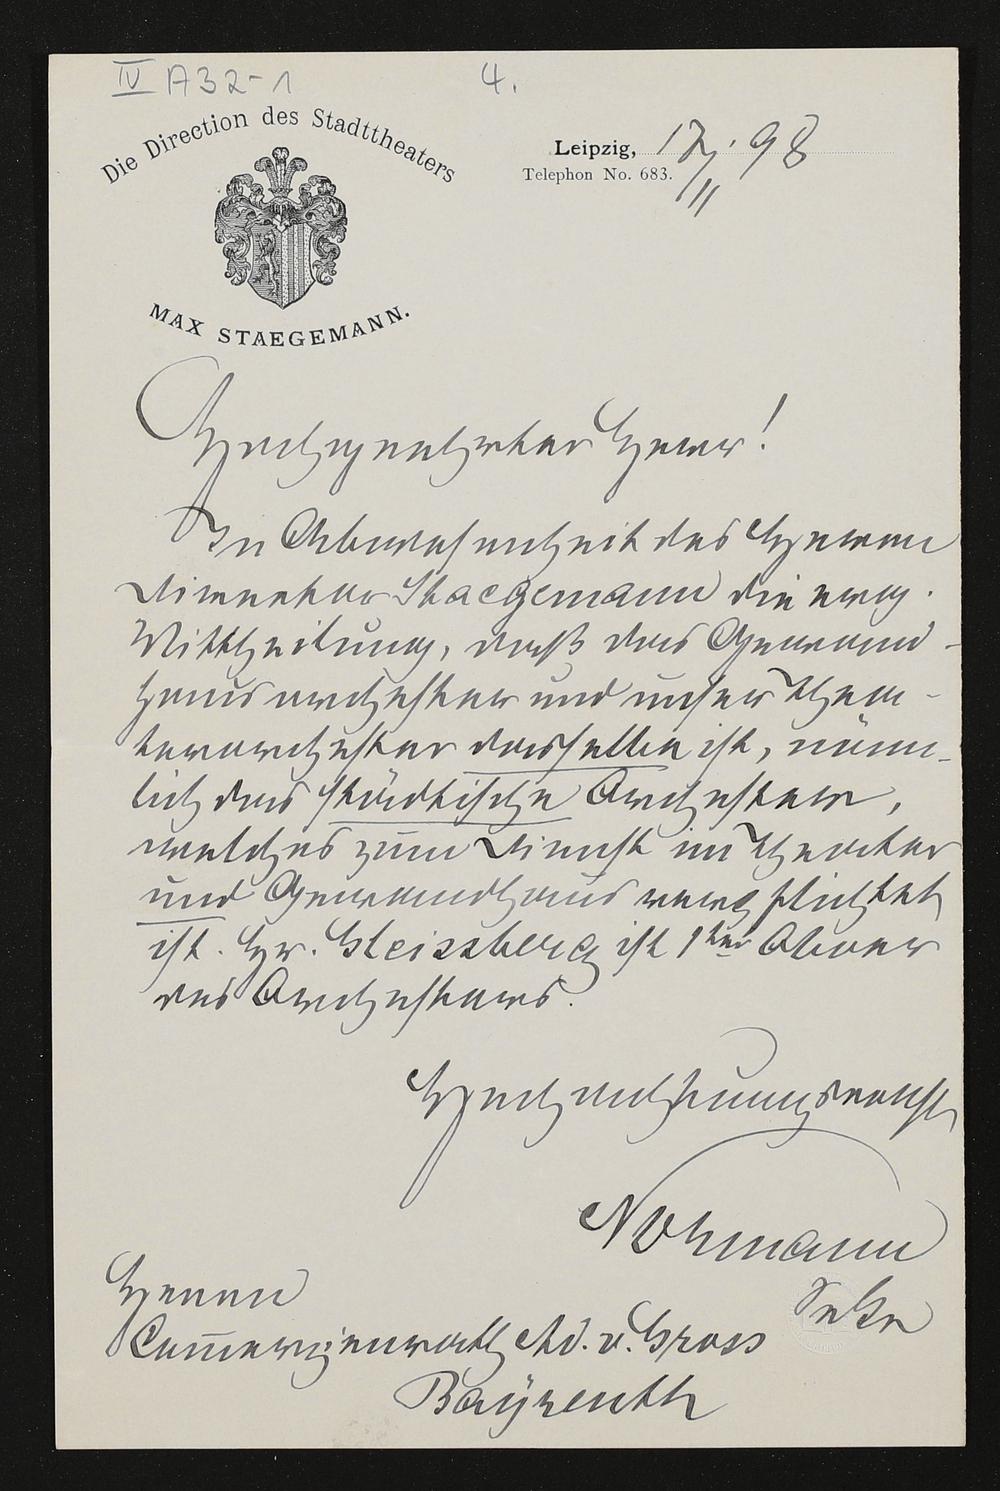 IV A32-1
4.
Die Direction des Stadttheaters
MAX STAEGEMANN.
Leipzig, 17/III. 98
Telephon No. 683.
Hochgeehrter Herr!
In Abwesenheit des Herrn
Direktor Staegemann die erg.
Mittheilung, daß das Gewand-
hausorchester und unser Thea-
terorchester dasselbe ist, näm-
lich das städtische Orchester,
welches zum Dienst im Theater
und Gewandhaus verpflichtet
ist. Hr. Gleissberg ist 1ter Oboer
des Orchesters.
Hochachtungsvollst
Sekr
Herrn
Com̅erzienrath Ad. v. Gross
Bayreuth